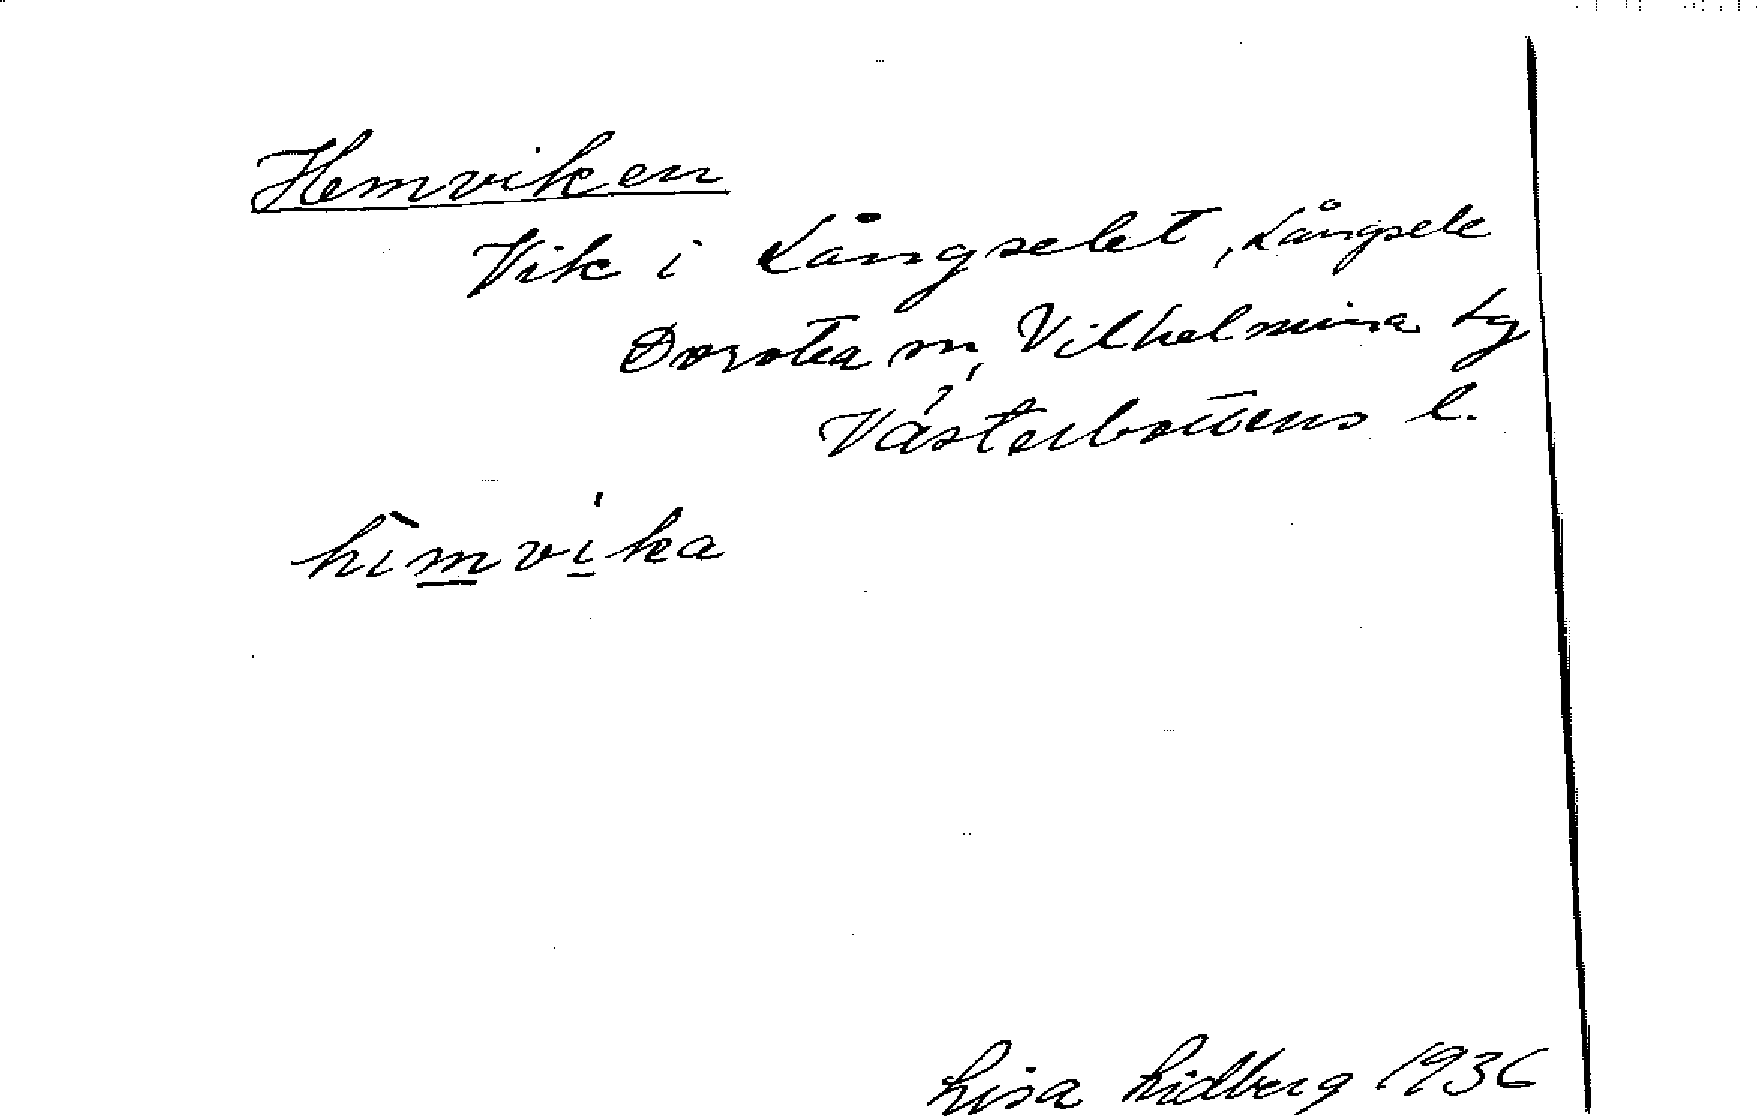 Hemviken
Vik i Långselet, Långsele
Dorotea sn, Vilhelmina tg
Västerbottens l.
hìmvika
Lisa Lidberg 1936